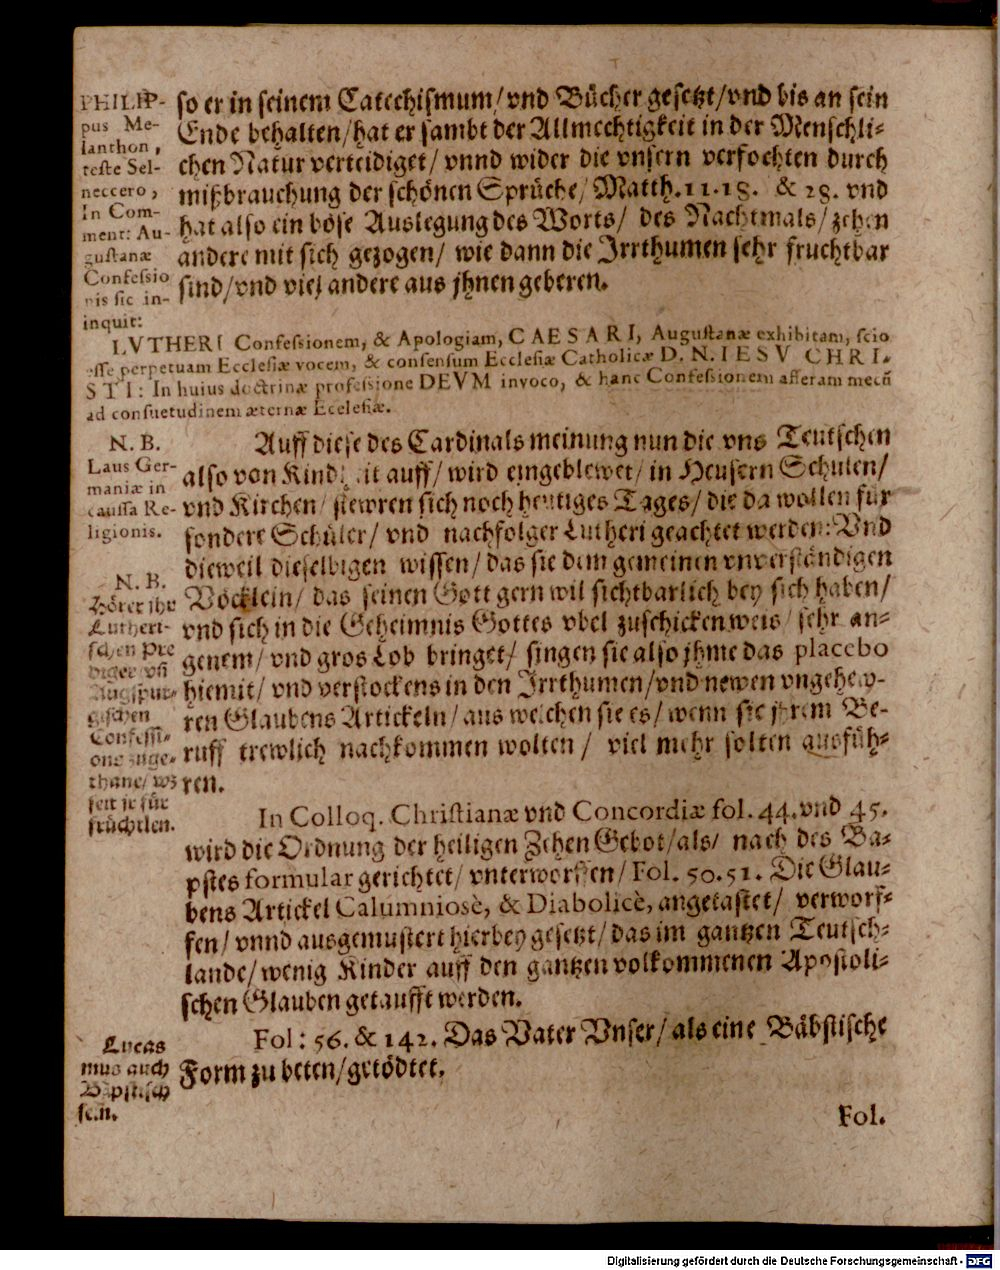 PHILIP-
pus Me-
lanthon,
teste Sel-
neccero,
In Com-
ment: Au-
gustanæ
Confessio
nis sic in-
inquit:
so er in seinem Catechismum/ vnd Bücher gesetzt/ vnd bis an sein
Ende behalten/ hat er sambt der Allmechtigkeit in der Menschli-
chen Natur verteidiget/ vnnd wider die vnsern verfochten durch
mißbrauchung der schönen Sprüche/ Matth. 11. 18. & 28. vnd
hat also ein böse Auslegung des Worts/ des Nachtmals/ zehen
andere mit sich gezogen/ wie dann die Irrthumen sehr fruchtbar
sind/ vnd viel andere aus jhnen geberen.
LVTHERI Confessionem, & Apologiam, CAESARI, Augustanæ exhibitam, scio
esse perpetuam Ecclesiæ vocem, & consensum Ecclesiæ Catholicæ D. N. IESV CHRI-
STI: In huius doctrinæ professione DEVM invoco, & hanc Confessionem afferam mecũ
ad consuetudinem æternæ Ecclesiæ.
N. B.
Laus Ger-
maniæ in
caussa Re-
ligionis.
Auff diese des Cardinals meinung nun die vns Teutschen
also von Kindheit auff/ wird eingeblewet/ in Heusern Schulen/
vnd Kirchen/ stewren sich noch heutiges Tages/ die da wollen für
sondere Schüler/ vnd nachfolger Lutheri geachtet werden: Vnd
dieweil dieselbigen wissen/ das sie dem gemeinen vnverständigen
Vöcklein/ das seinen Gott gern wil sichtbarlich bey sich haben/
vnd sich in die Geheimnis Gottes vbel zuschicken weis/ sehr an-
genem/ vnd gros Lob bringet/ singen sie also jhme das placebo
hiemit/ vnd verstockens in den Irrthumen/ vnd newen vngehew-
ren Glaubens Artickeln/ aus welchen sie es/ wenn sie jhrem Be-
ruff trewlich nachkommen wolten/ viel mehr solten ausfüh-
ren.
N. B.
Höret jhr
Lutheri-
schen Pre
diger vñ
Augspur-
gischen
Confessi-
one zuge-
thane/ wz
seit jr für
früchtlen.
In Colloq. Christianæ vnd Concordiæ fol. 44. vnd 45.
wird die Ordnung der heiligen Zehen Gebot/ als/ nach des Ba-
pstes formular gerichtet/ vnterworffen/ Fol. 50. 51. Die Glau-
bens Artickel Calumniosè, & Diabolicè, angetastet/ verworf-
fen/ vnnd ausgemustert hierbey gesetzt/ das im gantzen Teutsch-
lande/ wenig Kinder auff den gantzen volkommenen Apostoli-
schen Glauben getaufft werden.
Lucas
mus auch
Bäpstisch
sein.
Fol: 56. & 142. Das Vater Vnser/ als eine Bäbstische
Form zu beten/ getödtet.
Fol.
Digitalisierung gefördert durch die Deutsche Forschungsgemeinschaft - DFG